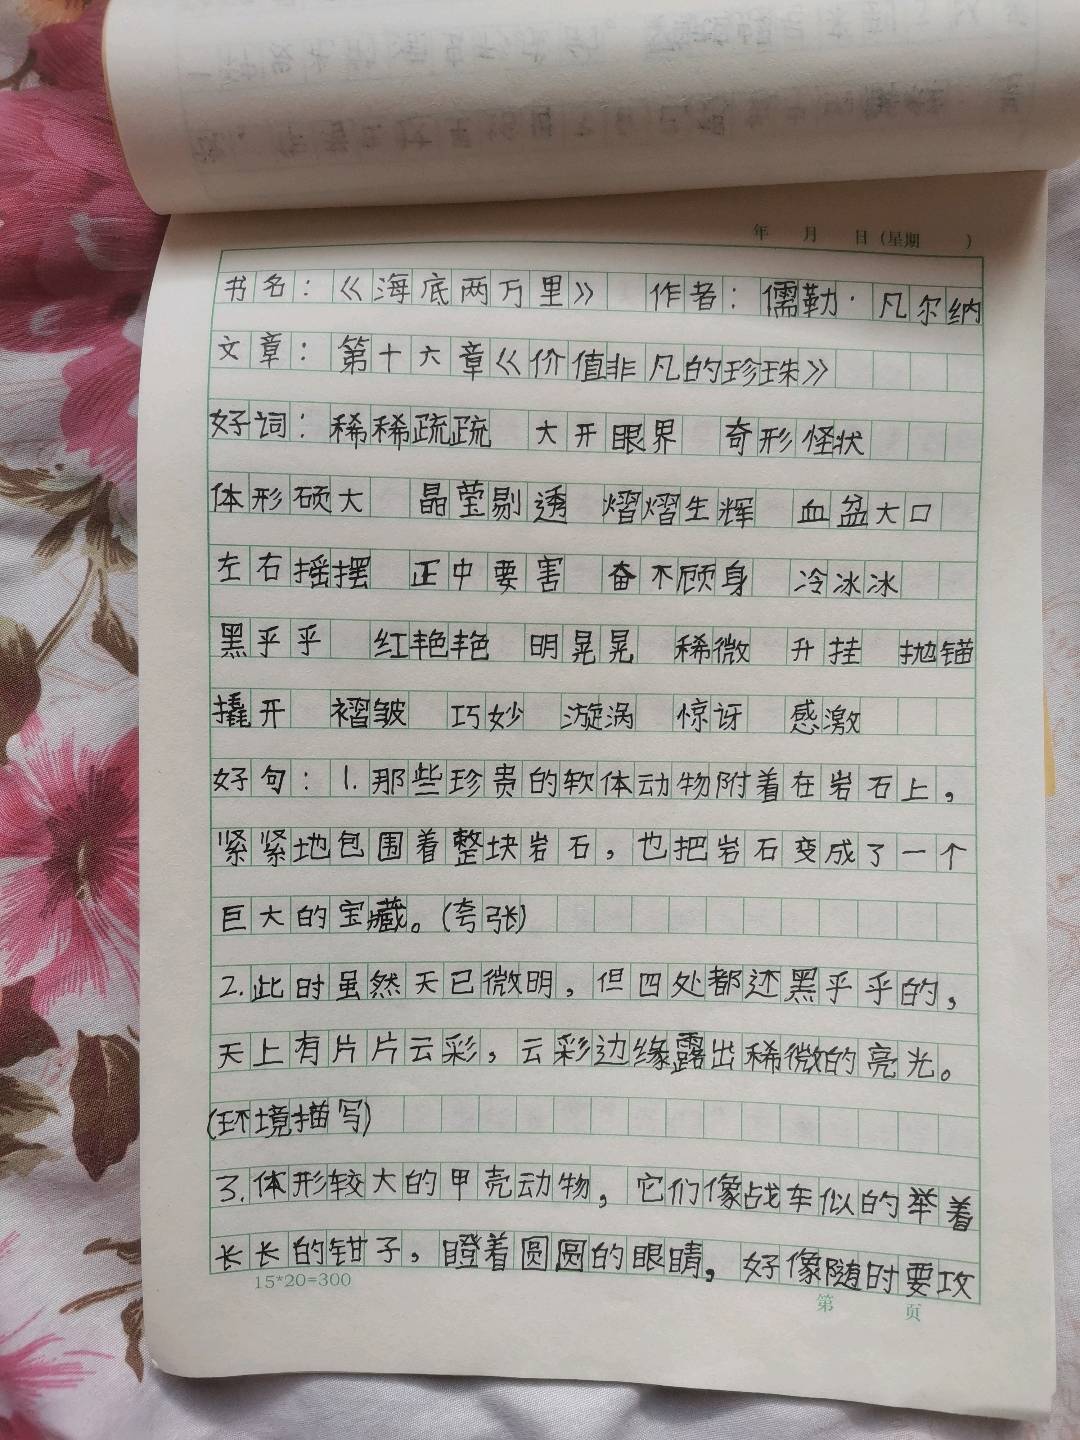 年 月 日（星期 ）
书名：《海底两万里》 作者：儒勒·凡尔纳
文章：第十六章《价值非凡的珍珠》
好词：稀稀疏疏 大开眼界 奇形怪状
体形硕大 晶莹剔透 熠熠生辉 血盆大口
左右摇摆 正中要害 奋不顾身 冷冰冰
黑乎乎 红艳艳 明晃晃 稀微 升挂 抛锚
撬开 褶皱 巧妙 漩涡 惊讶 感激
好句：1.那些珍贵的软体动物附着在岩石上，
紧紧地包围着整块岩石，也把岩石变成了一个
巨大的宝藏。(夸张)
2.此时虽然天已微明，但四处都还黑乎乎的，
天上有片片云彩，云彩边缘露出稀微的亮光。
(环境描写)
3.体形较大的甲壳动物，它们像战车似的举着
长长的钳子，瞪着圆圆的眼睛，好像随时要攻
15*20=300
第 页